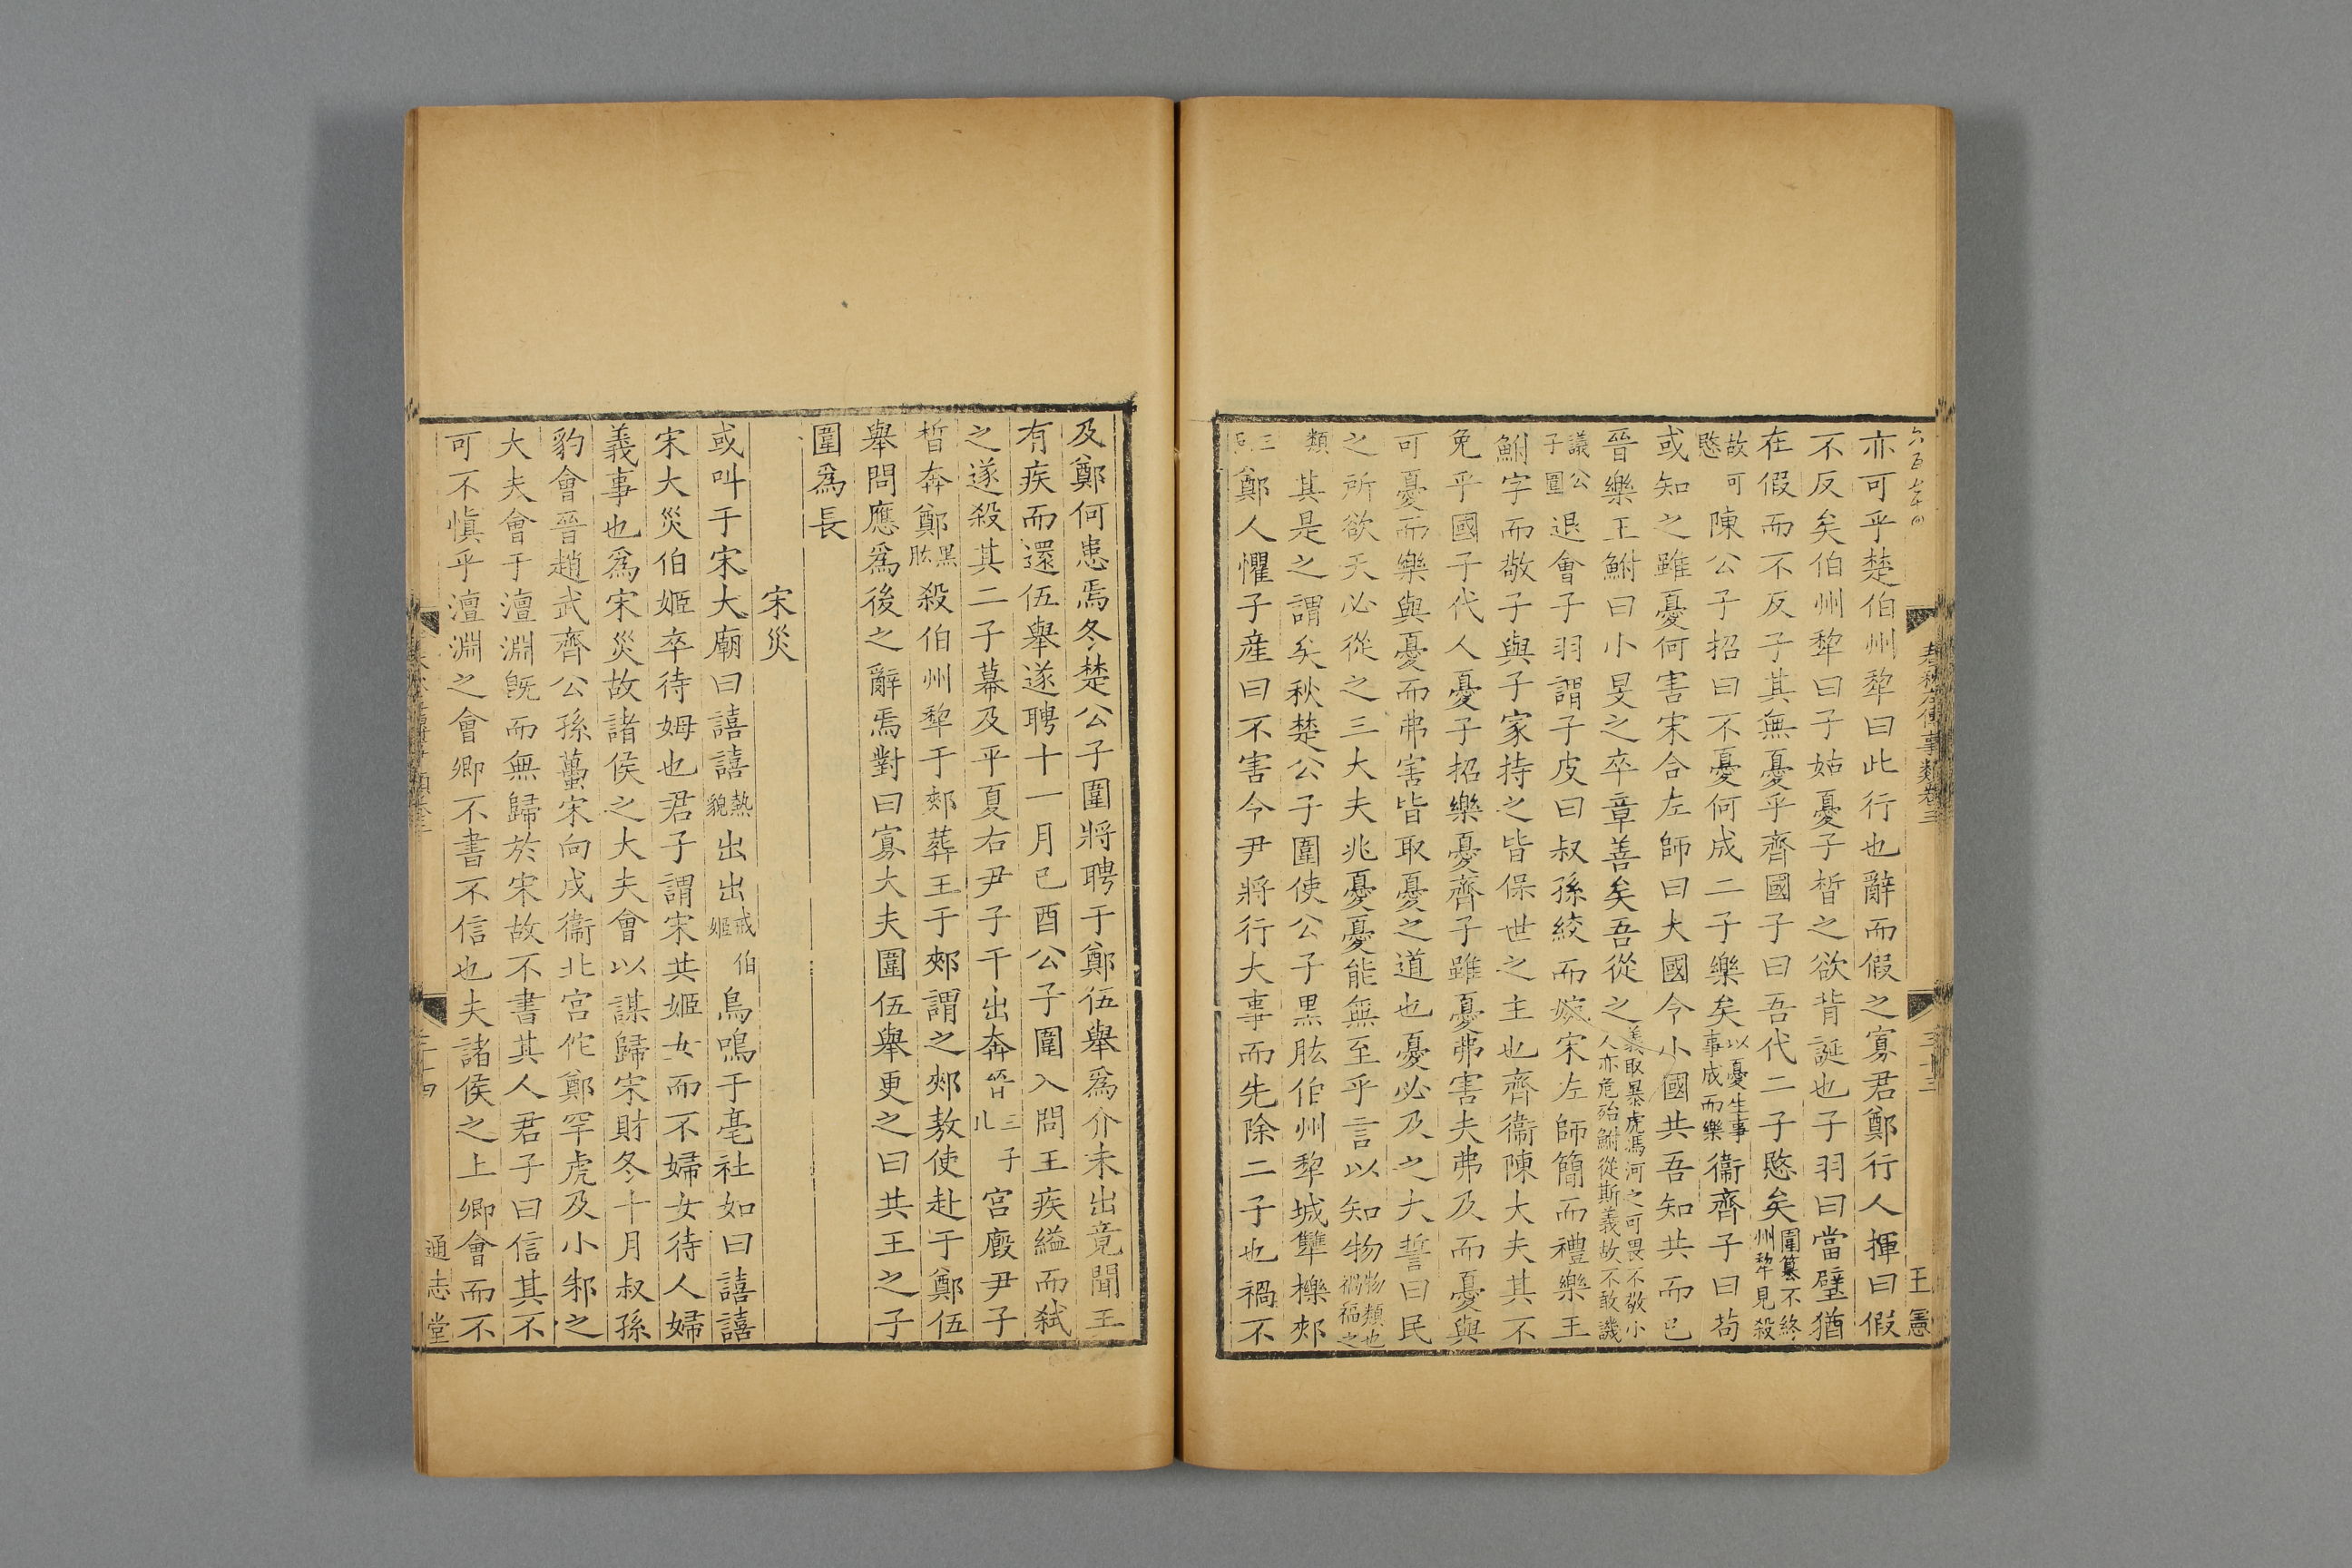 六百七十四
春秋左傳事類卷三
三十三
王憲
亦可乎楚伯州犂曰此行也辭而假之寡君鄭行人揮曰假
不反矣伯州犂曰子姑憂子晳之欲背誕也子羽曰當璧猶
在假而不反子其無憂乎齊國子曰吾代二子愍矣圍簒不終州犂見殺
故可愍陳公子招曰不憂何成二子樂矣以憂生事事成而樂衞齊子曰苟
或知之雖憂何害宋合左師曰大國令小國共吾知共而已
晉樂王鮒曰小旻之卒章善矣吾從之義取暴虎馮河之可畏不敬小人亦危殆鮒從斯義故不敢譏
議公子圍退會子羽謂子皮曰叔孫絞而婉宋左師簡而禮樂王
鮒字而敬子與子家持之皆保世之主也齊衞陳大夫其不
免乎國子代人憂子招樂憂齊子雖憂弗害夫弗及而憂與
可憂而樂與憂而弗害皆取憂之道也憂必及之大誓曰民
之所欲天必從之三大夫兆憂憂能無至乎言以知物物類也禍福之
類其是之謂矣秋楚公子圍使公子黑肱伯州犂城犫櫟郟
鄭人懼子産曰不害令尹將行大事而先除二子也禍不
及鄭何患焉冬楚公子圍將聘于鄭伍舉爲介未出竟聞王
有疾而還伍舉遂聘十一月己酉公子圍入問王疾縊而弑
之遂殺其二子幕及平夏右尹子干出奔晉宮廄尹子
晳奔鄭黑肱殺伯州犂于郟葬王于郟謂之郟敖使赴于鄭伍
舉問應爲後之辭焉對曰寡大夫圍伍舉更之曰共王之子
圍爲長
宋災
或叫于宋大廟曰譆譆熱貌出出戒伯姬鳥鳴于亳社如曰譆譆
宋大災伯姬卒待姆也君子謂宋共姬女而不婦女待人婦
義事也爲宋災故諸侯之大夫會以謀歸宋財冬十月叔孫
豹會晉趙武齊公孫蠆宋向戌衞北宮佗鄭罕虎及小邾之
大夫會于澶淵旣而無歸於宋故不書其人君子曰信其不
可不愼乎澶淵之會卿不書不信也夫諸侯之上卿會而不
三十四
通志堂